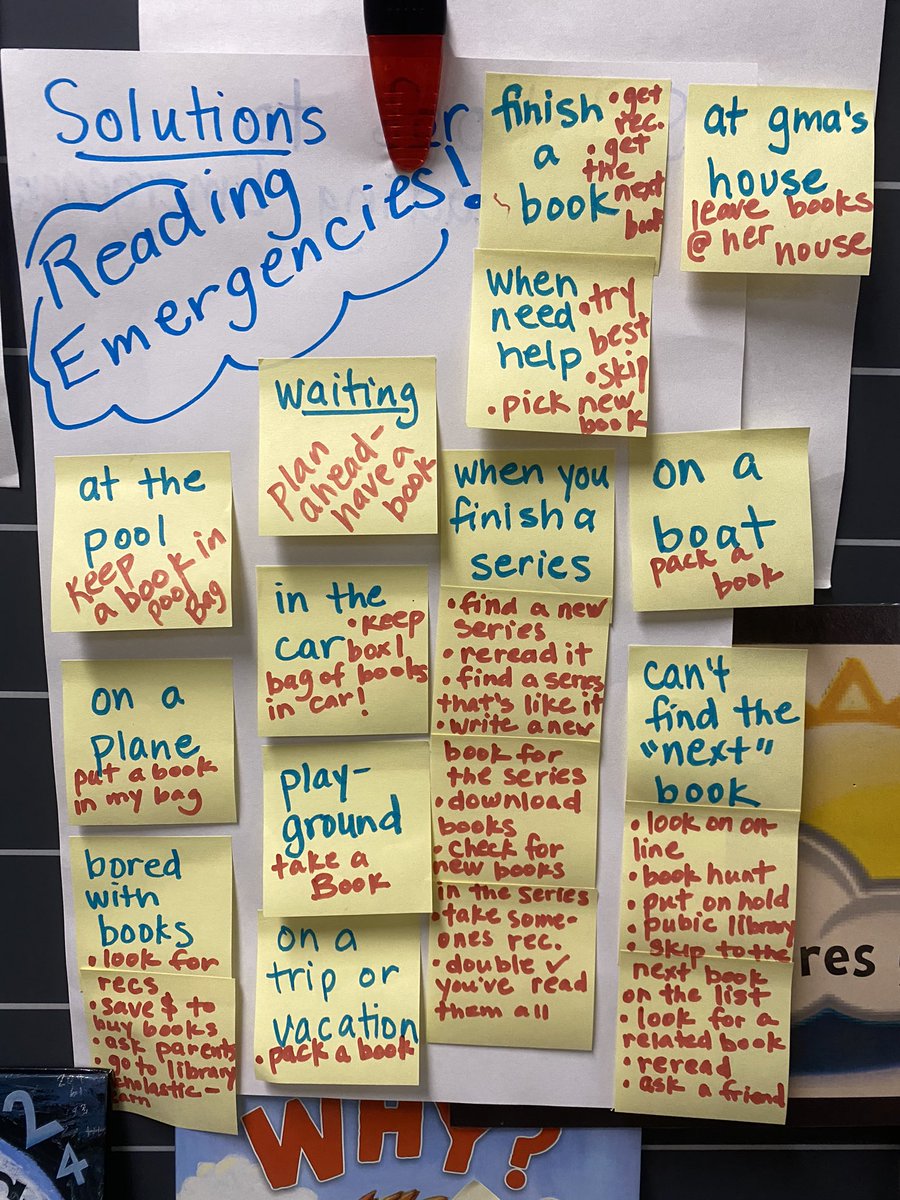 Solutions
for
Reading
Emergencies!
finish
a
book
• get
rec.
• get
the
next
book
at gma's
house
leave books
@ her house
when
need
help
• try
best
• skip
• pick new
book
waiting
plan
ahead-
have a
book
at the
pool
keep
a book in
pool
Bag
in the
car
• keep
box/
bag of books
in car!
when you
finish a
series
• find a new
series
• reread it
• find a series
that's like it
• write a new
book for
the series
• download
books
• check for
new books
in the series
• take some-
ones rec.
• double ✓
you've read
them all
on a
boat
pack a
book
on a
plane
put a book
in my bag
play-
ground
take a
Book
can't
find the
"next"
book
• look on on-
line
• book hunt
• put on hold
• pubic library
• skip to the
next book
on the list
• look for a
related book
• reread
• ask a friend
bored
with
books
• look for
recs
• save $ to
buy books
• ask parents
• go to library
scholastic-
earn
on a
trip or
vacation
• pack a book
res
WHY?
2
4